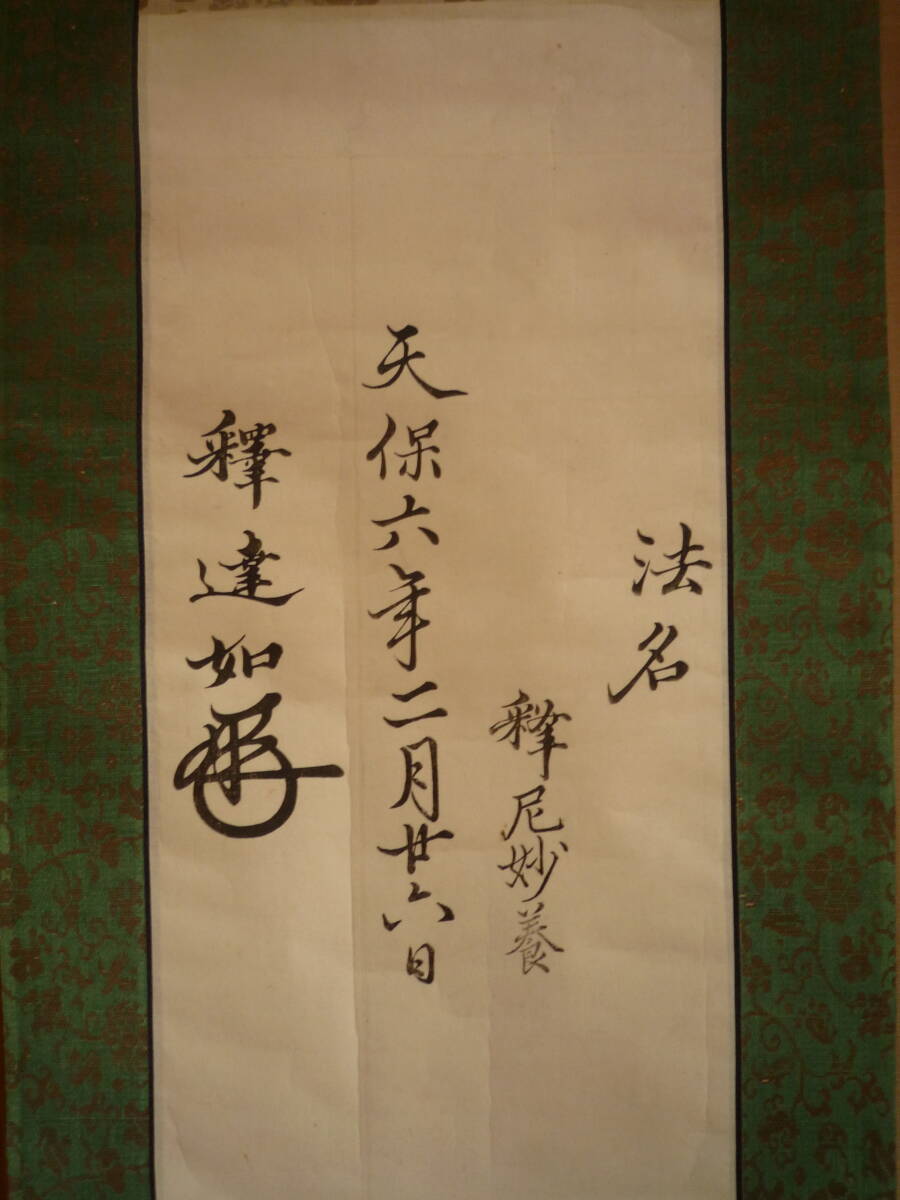 法名
釋尼妙養
天保六年二月廿六日
釋達如